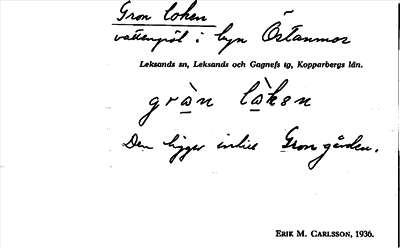 Gron loken
vattenpöl i byn Östanmor
Leksands sn, Leksands och Gagnefs tg, Kopparbergs län.
gràn lòkən
Den ligger intill Gron gården.
ERIK M. CARLSSON, 1936.